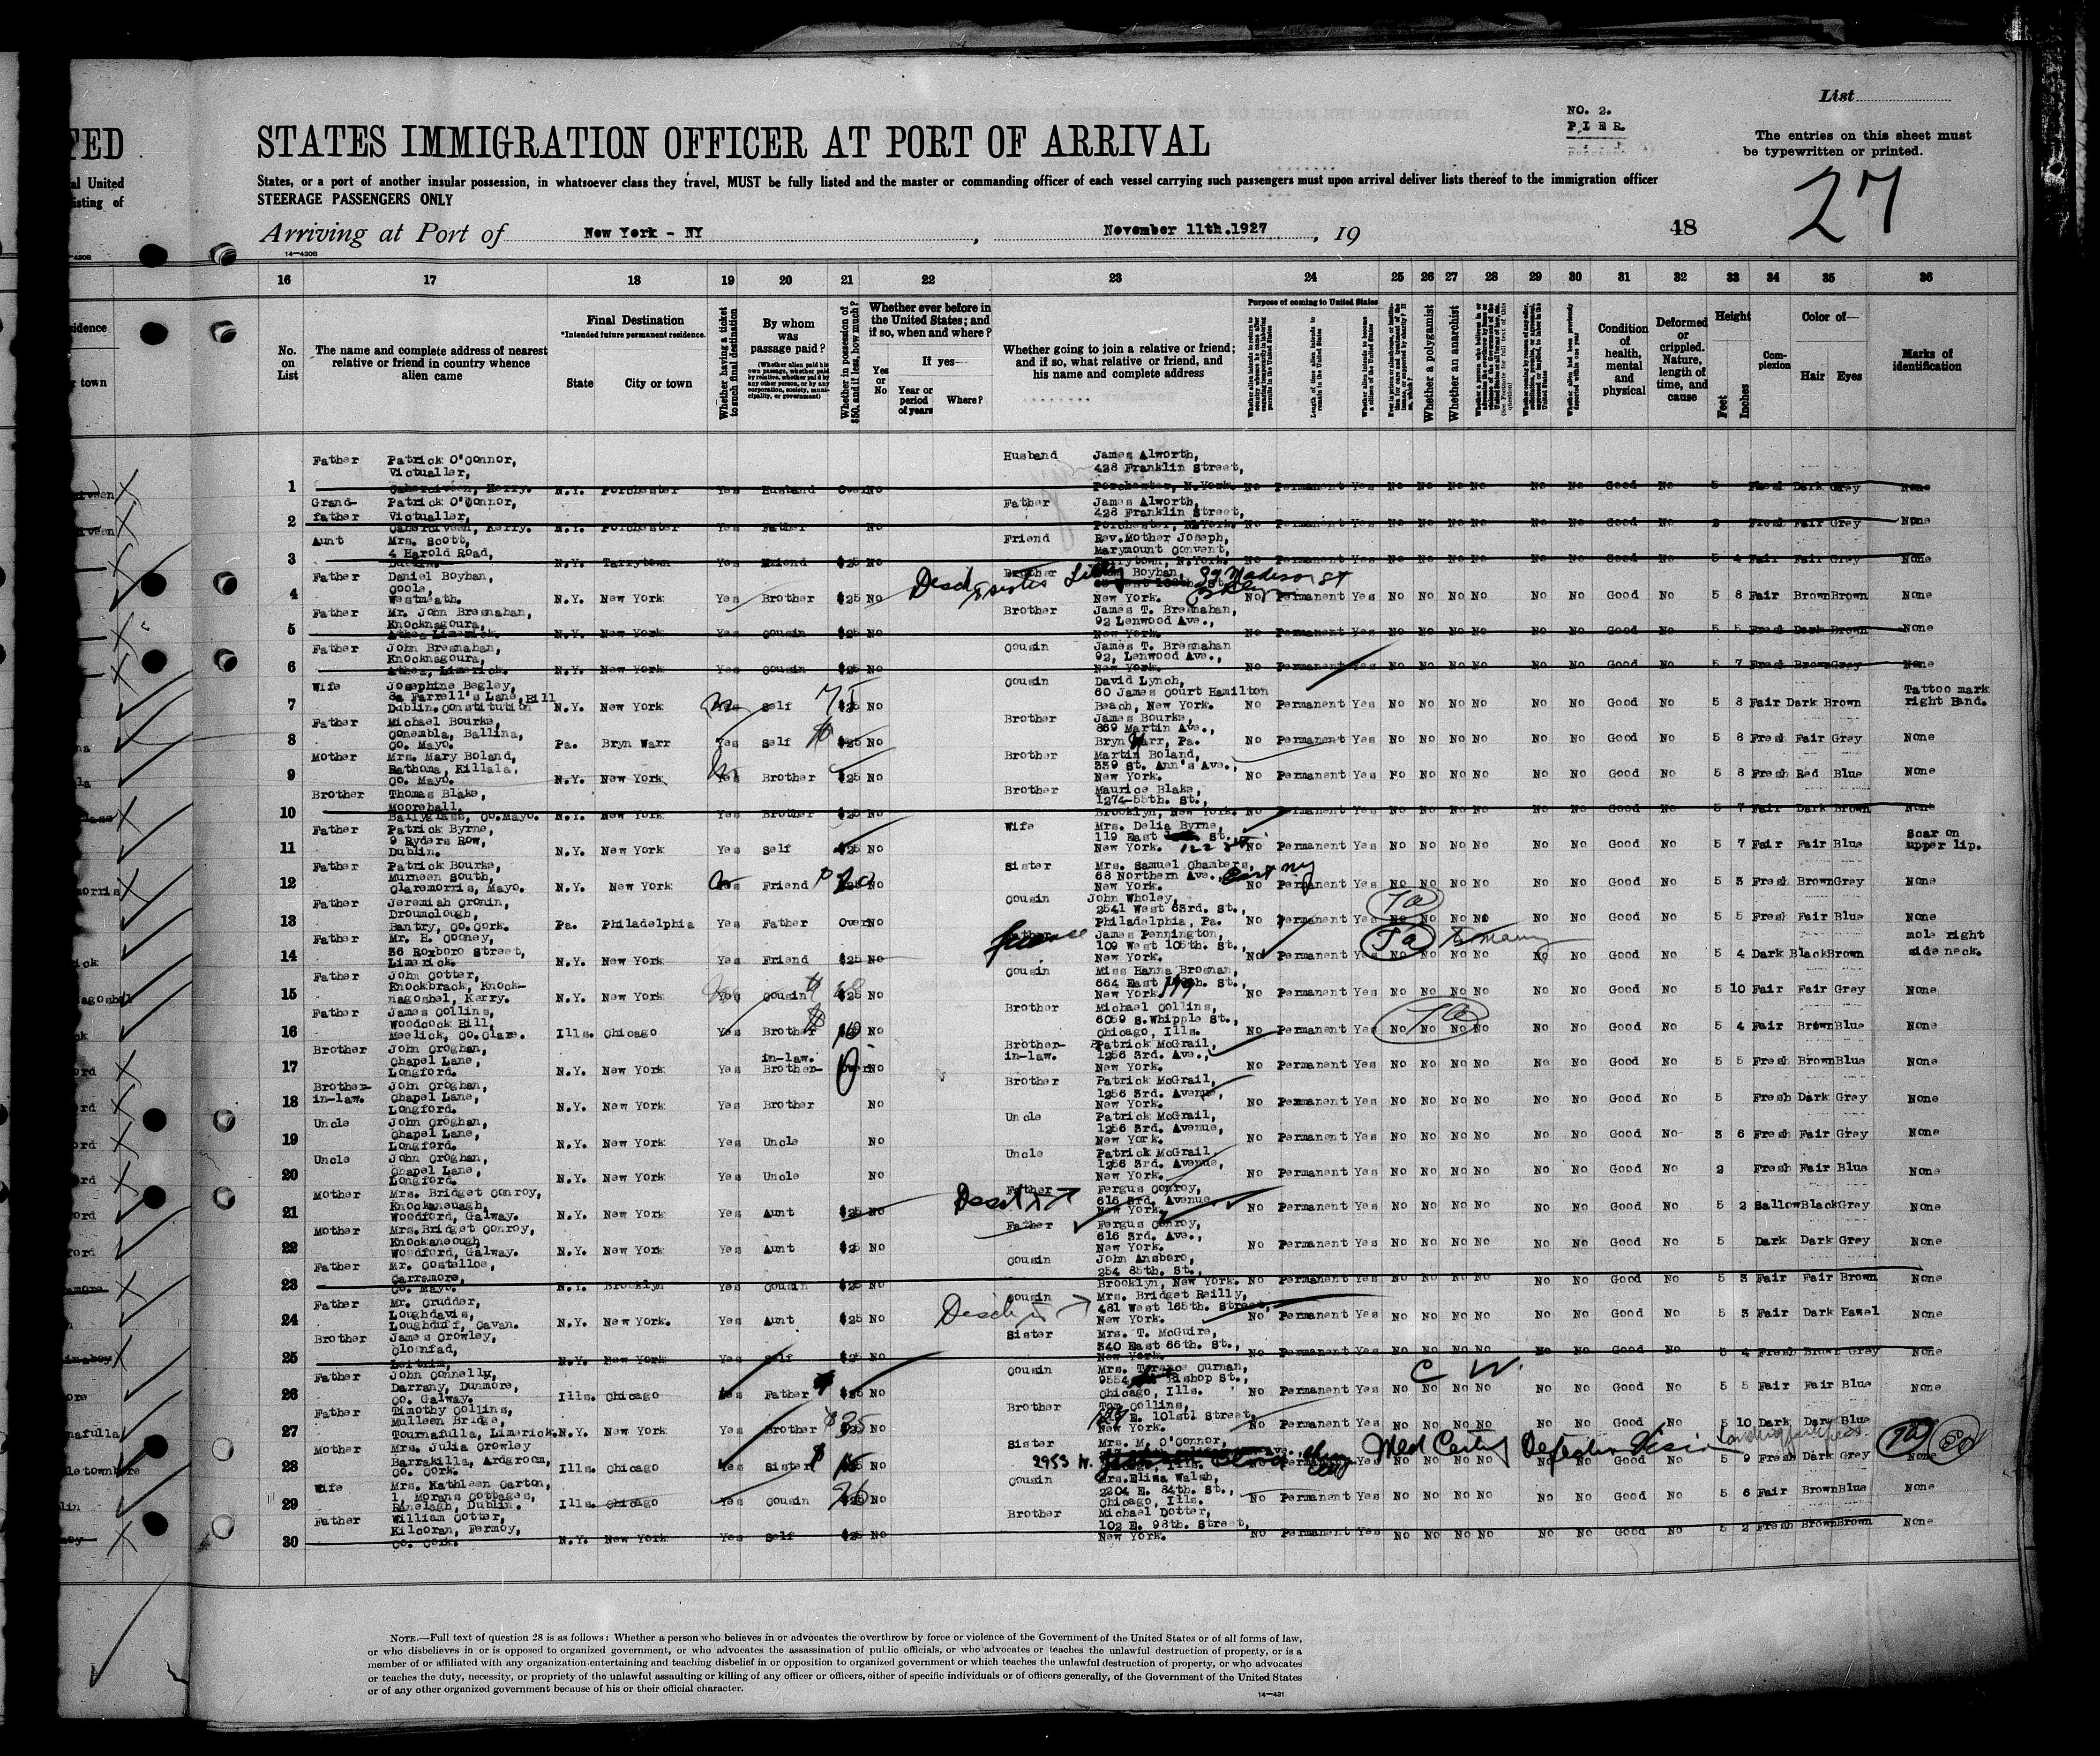 List
NO. 2.
PIER.
The entries on this sheet must
be typewritten or printed.
STATES IMMIGRATION OFFICER AT PORT OF ARRIVAL
States, or a port of another insular possession, in whatsoever class they travel, MUST be fully listed and the master or commanding officer of each vessel carrying such passengers must upon arrival deliver lists thereof to the immigration officer
STEERAGE PASSENGERS ONLY
27
Arriving at Port of New York - NY , November 11th.1927 , 19 48
14—430B
16 17 18 19 20 21 22 23 24 25 26 27 28 29 30 31 32 33 34 35 36
No. on List
The name and complete address of nearest relative or friend in country whence alien came
Final Destination
*Intended future permanent residence.
State City or town
Whether having a ticket to such final destination
By whom was passage paid?
Whether in possession of $50, and if less, how much?
Whether ever before in the United States; and if so, when and where?
Yes or No
If yes—
Year or period of years
Where?
Whether going to join a relative or friend; and if so, what relative or friend, and his name and complete address
Purpose of coming to United States
Length of time alien intends to remain in the United States
Whether a polygamist
Whether an anarchist
Condition of health, mental and physical
Deformed or crippled. Nature, length of time, and cause
Height
Feet Inches
Complexion
Color of—
Hair Eyes
Marks of identification
1 Father Patrick O'Connor, Victualler, Caherciveen, Kerry. N.Y. Porchester Yes Husband Over No Husband James Alworth, 428 Franklin Street, Porchester, N.York. No Permanent Yes No No No No No No Good No 5 Fresh Dark Grey None
2 Grand-father Patrick O'Connor, Victualler, Caherciveen, Kerry. N.Y. Porchester Yes Father No Father James Alworth, 428 Franklin Street, Porchester, N.York. No Permanent Yes No No No No No No Good No 2 Fresh Fair Grey None
3 Aunt Mrs. Scott, 4 Harold Road, Dublin. N.Y. Tarrytown Yes Friend $25 No Friend Rev.Mother Joseph, Marymount Convent, Tarrytown, N.York. No Permanent Yes No No No No No No Good No 5 4 Fair Fair Grey None
4 Father Daniel Boyhan, Coole, Westmeath. N.Y. New York Yes Brother $25 No Brother Boyhan, 89 Madison St New York. No Permanent Yes No No No No No No Good No 5 8 Fair Brown Brown None
5 Father Mr. John Bresnahan, Knocknagoura, Athea Limerick. N.Y. New York Yes Cousin $25 No Brother James T. Bresnahan, 92 Lenwood Ave., New York. No Permanent Yes No No No No No No Good No 5 5 Fresh Dark Brown None
6 Father John Bresnahan, Knocknagoura, Athea, Limerick. N.Y. New York Yes Cousin $25 No Cousin James T. Bresnahan 92, Lenwood Ave., New York. No Permanent Yes No No No No No No Good No 5 7 Fresh Brown Grey None
7 Wife Josephine Begley, 8a Farrell's Lane, Dublin. Constitution Hill N.Y. New York Self 75 $25 No Cousin David Lynch, 60 James Court Hamilton Beach, New York. No Permanent Yes No No No No No No Good No 5 8 Fair Dark Brown Tattoo mark right Hand.
8 Father Michael Bourke, Conembla, Ballina, Co. Mayo. Pa. Bryn Warr Yes Self $25 No Brother James Bourke, 869 Martin Ave., Bryn Warr, Pa. No Permanent Yes No No No No No No Good No 5 8 Fresh Fair Grey None
9 Mother Mrs. Mary Boland, Rathoma, Killala, Co. Mayo. N.Y. New York Yes Brother $25 No Brother Martin Boland, 339 St. Ann's Ave., New York. No Permanent Yes No No No No No No Good No 5 8 Fresh Red Blue None
10 Brother Thomas Blake, Moorehall, Ballyglass, Co.Mayo. N.Y. New York Yes Brother $25 No Brother Maurice Blake, 1274-55th. St., Brooklyn, New York. No Permanent Yes No No No No No No Good No 5 7 Fair Dark Brown None
11 Father Patrick Byrne, 9 Ryders Row, Dublin. N.Y. New York Yes Self $25 No Wife Mrs. Delia Byrne, 119 East St. New York. 122 No Permanent Yes No No No No No No Good No 5 7 Fair Fair Blue Scar on upper lip.
12 Father Patrick Bourke, Murneen South, Claremorris, Mayo. N.Y. New York Yes Friend $25 No Sister Mrs. Samuel Chambers, 68 Northern Ave., New York. No Permanent Yes No No No No No No Good No 5 3 Fresh Brown Grey None
13 Father Jeremiah Cronin, Droumclough, Bantry, Co.Cork. Pa. Philadelphia Yes Father Over No Cousin John Wholey, 2541 West 63rd. St., Philadelphia, Pa. No Permanent Yes No No No No No No Good No 5 5 Fresh Fair Blue None
14 Father Mr. H. Cooney, 36 Roxboro Street, Limerick. N.Y. New York Yes Friend $25 No fiancee James Pennington, 109 West 105th. St., New York. No Permanent Yes No No No No No No Good No 5 4 Dark Black Brown mole right side neck.
15 Father John Cotter, Knockbrack, Knock-nagoshel, Kerry. N.Y. New York Yes Cousin $25 No Cousin Miss Hanna Brosnan, 664 East St., New York. 179 No Permanent Yes No No No No No No Good No 5 10 Fair Fair Grey None
16 Father James Collins, Woodcock Hill, Meelick, Co.Clare. Ills. Chicago Yes Brother No Brother Michael Collins, 6059 S.Whipple St., Chicago, Ills. No Permanent Yes No No No No No No Good No 5 4 Fair Brown Blue None
17 Brother John Croghan, Chapel Lane, Longford. N.Y. New York Yes Brother-in-law. Over No Brother-in-law. Patrick McGrail, 1256 3rd. Ave., New York. No Permanent Yes No No No No No No Good No 5 5 Fresh Brown Blue None
18 Brother-in-law. John Croghan, Chapel Lane, Longford. N.Y. New York Yes Brother No Brother Patrick McGrail, 1256 3rd. Avenue, New York. No Permanent Yes No No No No No No Good No 5 Fresh Dark Grey None
19 Uncle John Croghan, Chapel Lane, Longford. N.Y. New York Yes Uncle No Uncle Patrick McGrail, 1256 3rd. Avenue, New York. No Permanent Yes No No No No No No Good No 3 6 Fresh Fair Grey None
20 Uncle John Croghan, Chapel Lane, Longford. N.Y. New York Yes Uncle No Uncle Patrick McGrail, 1256 3rd. Avenue, New York. No Permanent Yes No No No No No No Good No 2 Fresh Fair Blue None
21 Mother Mrs. Bridget Conroy, Knockaneuagh, Woodford, Galway. N.Y. New York Yes Aunt $25 No Father Fergus Conroy, 616 3rd. Avenue New York. No Permanent Yes No No No No No No Good No 5 2 Sallow Black Grey None
22 Mother Mrs.Bridget Conroy, Knockaneough Woodford, Galway. N.Y. New York Yes Aunt $25 No Father Fergus Conroy, 616 3rd. Ave., New York. No Permanent Yes No No No No No No Good No 5 Dark Dark Grey None
23 Father Mr. Costelloe, Carramore, Co. Mayo. N.Y. Brooklyn Yes Cousin $25 No Cousin John Ansboro, 254 85th. St., Brooklyn, New York. No Permanent Yes No No No No No No Good No 5 3 Fair Fair Brown None
24 Father Mr. Crudder, Loughdavis, Loughduff, Cavan. N.Y. New York. Yes Aunt $25 No Cousin Mrs. Bridget Reilly, 481 West 165th. Street, New York. No Permanent Yes No No No No No No Good No 5 3 Fair Dark Hazel None
25 Brother James Crowley, Cloonfad, Leitrim, N.Y. New York Yes Self $25 No Sister Mrs. T. McGuire, 340 East 66th. St., New York. No Permanent Yes No No No No No No Good No 5 4 Fresh Brown Grey None
C W.
26 Father John Connelly, Darrany, Dunmore, Co. Galway. Ills. Chicago Yes Father $25 No Cousin Mrs. Curnan, 9554 Bishop St., Chicago, Ills. No Permanent Yes No No No No No No Good No 5 5 Fair Fair Blue None
27 Father Timothy Collins, Mulleen Bridge, Tournafulla, Limerick. N.Y. New York Yes Brother $25 No Brother Tom Collins, E. 101st Street, New York. No Permanent Yes No No No No No No Good No 5 10 Dark Dark Blue
28 Mother Mrs. Julia Crowley Barrakilla, Ardgroom, Co. Cork. Ills. Chicago Yes Sister No Sister Mrs. M. O'Connor, 2953 W. Med Cert Defective Vision No No No No No No Good No 5 9 Fresh Dark Grey None
29 Wife Mrs. Kathleen Carton, 1, Morans Cottages, Ranelagh, Dublin. Ills. Chicago Yes Cousin $25 No Cousin Mrs.Eliza Walsh, 2204 E. 84th. St., Chicago, Ills. No Permanent Yes No No No No No No Good No 5 6 Fair Brown Blue None
30 Father William Cotter, Kilcoran, Fermoy, Co. Cork. N.Y. New York Yes Self $25 No Brother Michael Dotter, 102 E. 98th. Street, New York. No Permanent Yes No No No No No No Good No 5 2 Fresh Brown Brown None
NOTE.—Full text of question 28 is as follows: Whether a person who believes in or advocates the overthrow by force or violence of the Government of the United States or of all forms of law,
or who disbelieves in or is opposed to organized government, or who advocates the assassination of public officials, or who advocates or teaches the unlawful destruction of property, or is a
member of or affiliated with any organization entertaining and teaching disbelief in or opposition to organized government or which teaches the unlawful destruction of property, or who advocates
or teaches the duty, necessity, or propriety of the unlawful assaulting or killing of any officer or officers, either of specific individuals or of officers generally, of the Government of the United States
or of any other organized government because of his or their official character.
14—431